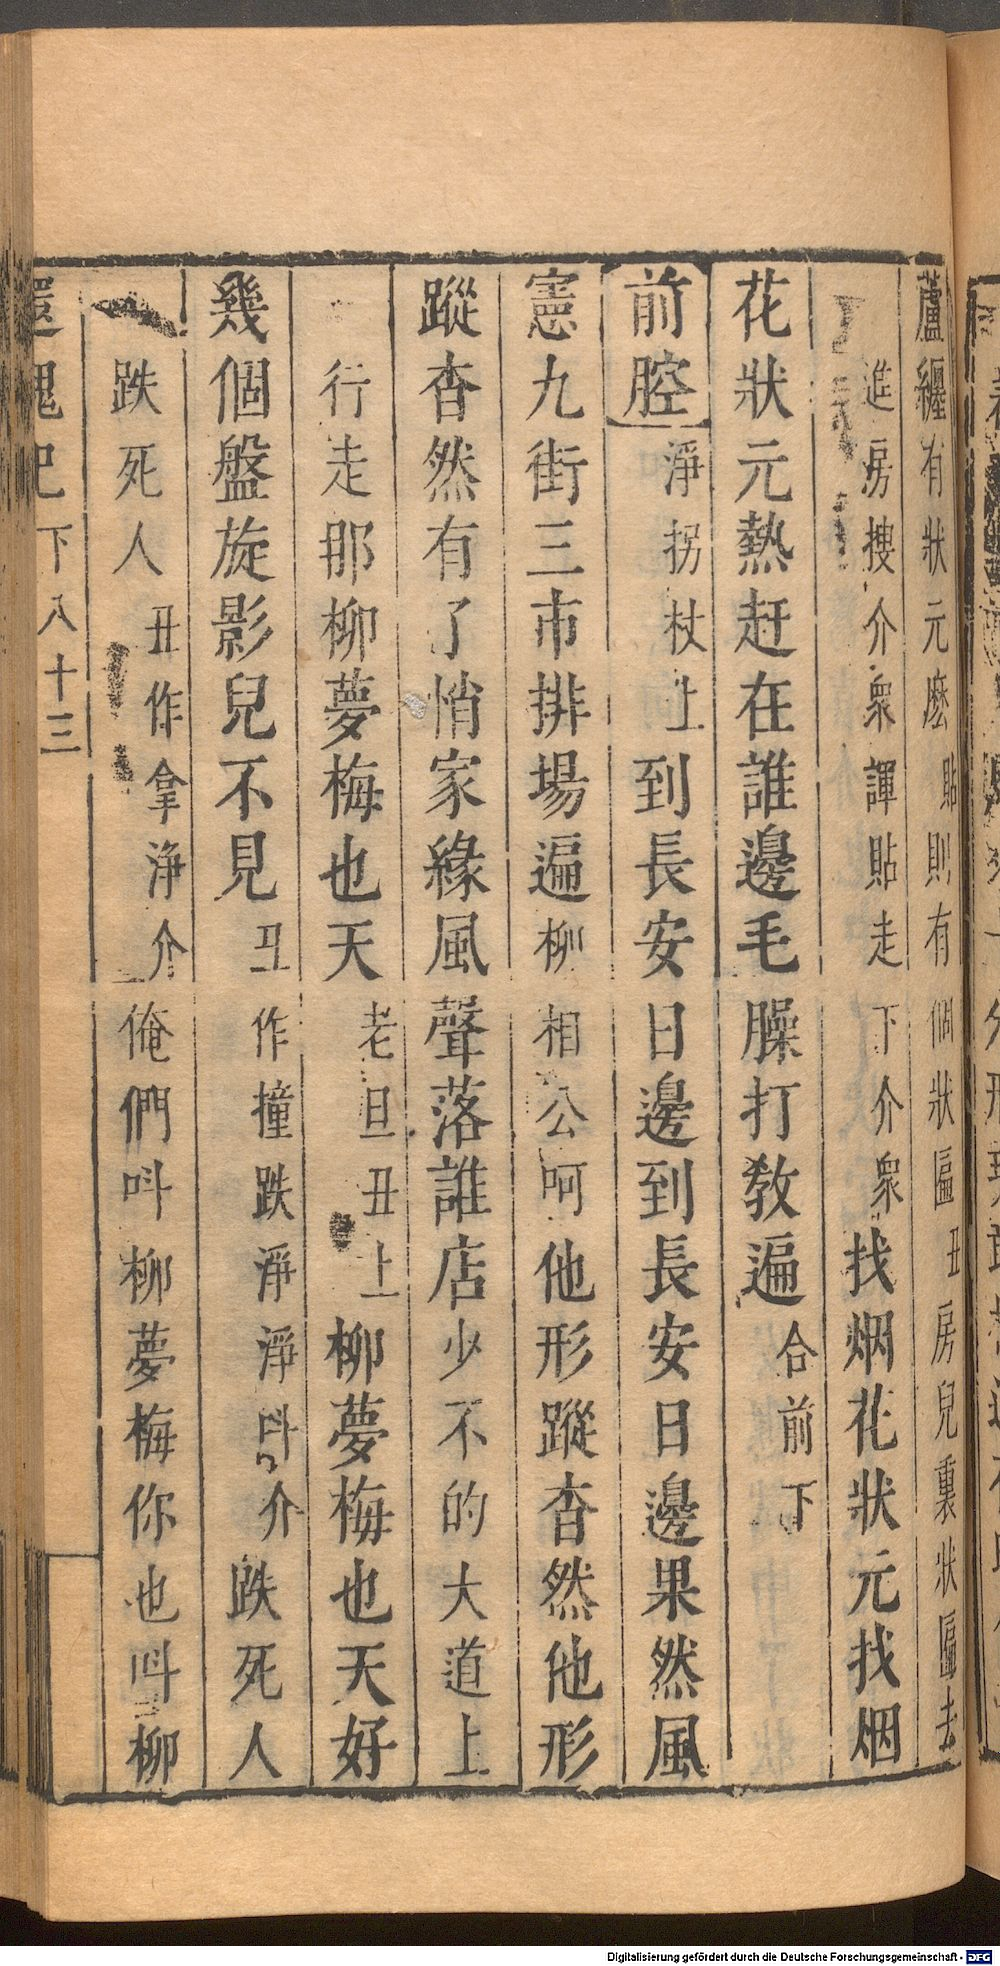 蘆纏有狀元麽貼則有個狀匾丑房兒裏狀匾去
進房搜介衆諢貼走下介衆找烟花狀元找烟
花狀元熱赶在誰邊毛臊打教遍合前下
前腔淨拐杖上到長安日邊到長安日邊果然風
憲九街三市排場遍柳相公呵他形蹤杳然他形
蹤杳然有了悄家緣風聲落誰店少不的大道上
行走那柳夢梅也天老旦丑上柳夢梅也天好
幾個盤旋影兒不見丑作撞跌淨淨呌介跌死人
跌死人丑作拿淨介俺們呌柳夢梅你也呌柳
還魂記 下 八十三
Digitalisierung gefördert durch die Deutsche Forschungsgemeinschaft - DFG